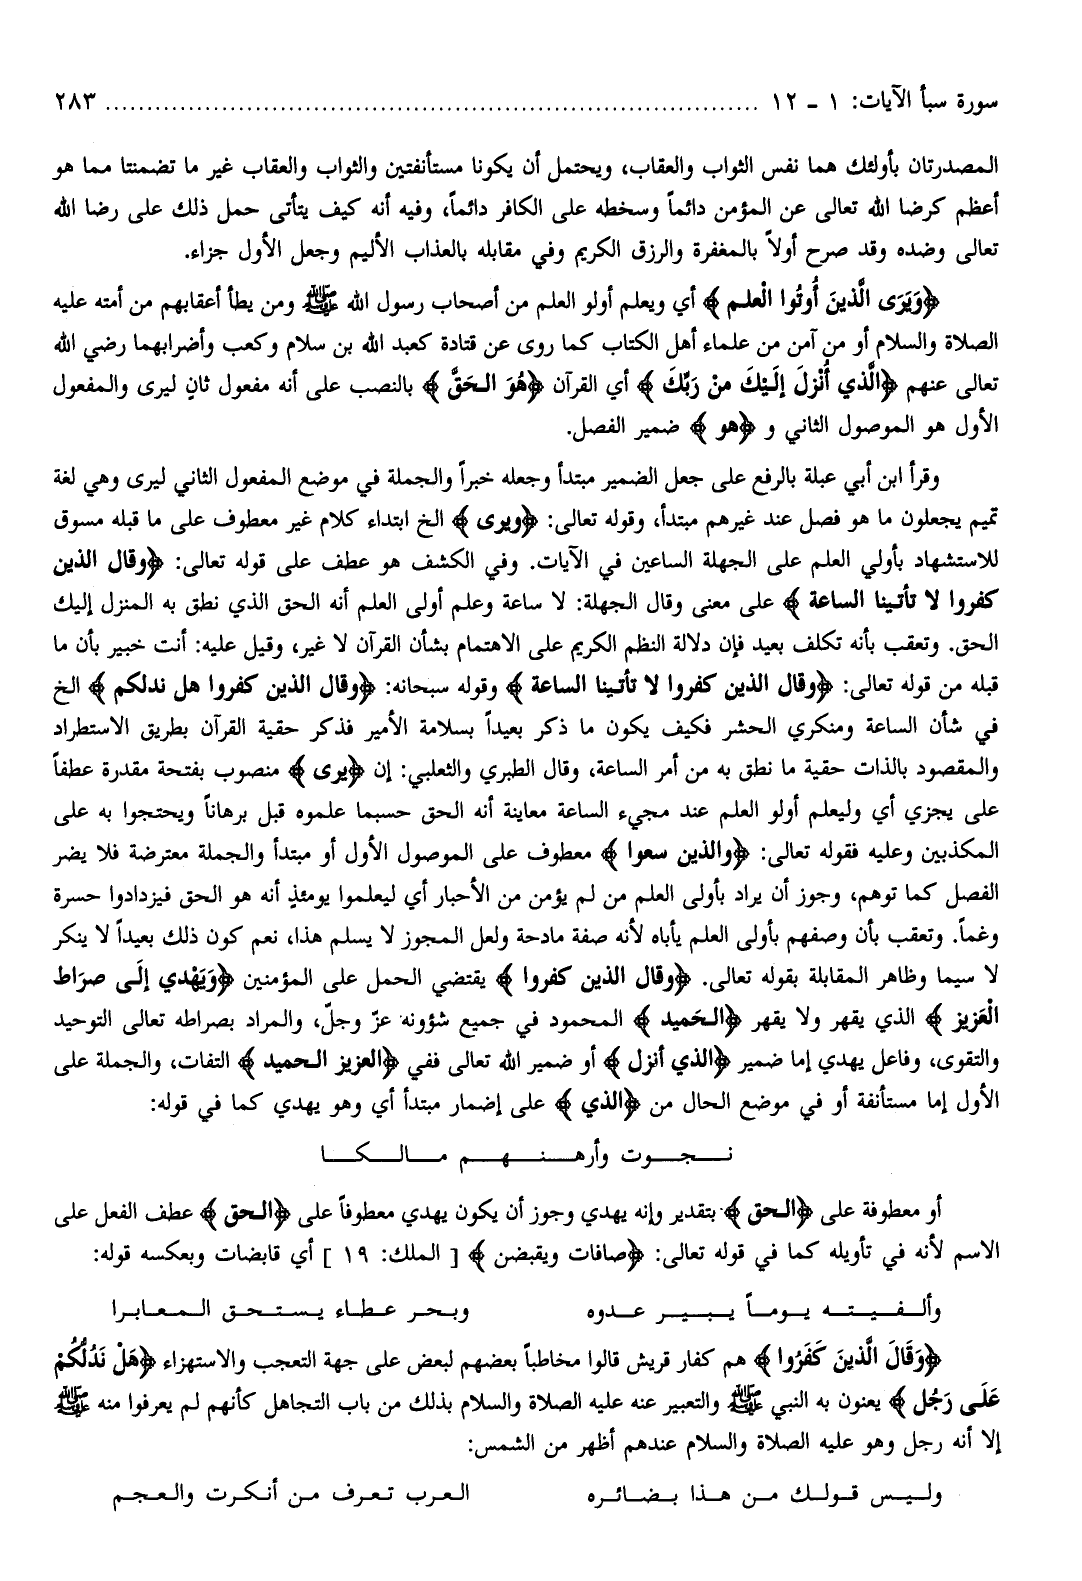 سورة سبأ الآيات: ١ - ١٢ ................................................................................ ٢٨٣
المصدرتان بأولئك هما نفس الثواب والعقاب، ويحتمل أن يكونا مستأنفتين والثواب والعقاب غير ما تضمنتا مما هو
أعظم كرضا الله تعالى عن المؤمن دائماً وسخطه على الكافر دائماً، وفيه أنه كيف يتأتى حمل ذلك على رضا الله
تعالى وضده وقد صرح أولاً بالمغفرة والرزق الكريم وفي مقابله بالعذاب الأليم وجعل الأول جزاء.
﴿وَيَرَى الَّذينَ أُوتُوا الْعلم﴾ أي ويعلم أولو العلم من أصحاب رسول الله ﷺ ومن يطأ أعقابهم من أمته عليه
الصلاة والسلام أو من آمن من علماء أهل الكتاب كما روى عن قتادة كعبد الله بن سلام وكعب وأضرابهما رضي الله
تعالى عنهم ﴿الَّذي أُنْزلَ إلَيْكَ منْ رَبِّكَ﴾ أي القرآن ﴿هُوَ الحَقَّ﴾ بالنصب على أنه مفعول ثانٍ ليرى والمفعول
الأول هو الموصول الثاني و ﴿هو﴾ ضمير الفصل.
وقرأ ابن أبي عبلة بالرفع على جعل الضمير مبتدأ وجعله خبراً والجملة في موضع المفعول الثاني ليرى وهي لغة
تميم يجعلون ما هو فصل عند غيرهم مبتدأ، وقوله تعالى: ﴿ويرى﴾ الخ ابتداء كلام غير معطوف على ما قبله مسوق
للاستشهاد بأولي العلم على الجهلة الساعين في الآيات. وفي الكشف هو عطف على قوله تعالى: ﴿وقال الذين
كفروا لا تأتينا الساعة﴾ على معنى وقال الجهلة: لا ساعة وعلم أولى العلم أنه الحق الذي نطق به المنزل إليك
الحق. وتعقب بأنه تكلف بعيد فإن دلالة النظم الكريم على الاهتمام بشأن القرآن لا غير، وقيل عليه: أنت خبير بأن ما
قبله من قوله تعالى: ﴿وقال الذين كفروا لا تأتينا الساعة﴾ وقوله سبحانه: ﴿وقال الذين كفروا هل ندلكم﴾ الخ
في شأن الساعة ومنكري الحشر فكيف يكون ما ذكر بعيداً بسلامة الأمير فذكر حقية القرآن بطريق الاستطراد
والمقصود بالذات حقية ما نطق به من أمر الساعة، وقال الطبري والثعلبي: إن ﴿يرى﴾ منصوب بفتحة مقدرة عطفاً
على يجزي أي وليعلم أولو العلم عند مجيء الساعة معاينة أنه الحق حسبما علموه قبل برهاناً ويحتجوا به على
المكذبين وعليه فقوله تعالى: ﴿والذين سعوا﴾ معطوف على الموصول الأول أو مبتدأ والجملة معترضة فلا يضر
الفصل كما توهم، وجوز أن يراد بأولى العلم من لم يؤمن من الأحبار أي ليعلموا يومئذٍ أنه هو الحق فيزدادوا حسرة
وغماً. وتعقب بأن وصفهم بأولى العلم يأباه لأنه صفة مادحة ولعل المجوز لا يسلم هذا، نعم كون ذلك بعيداً لا ينكر
لا سيما وظاهر المقابلة بقوله تعالى. ﴿وقال الذين كفروا﴾ يقتضي الحمل على المؤمنين ﴿وَيَهْدي إلَى صرَاط
الْعَزيز﴾ الذي يقهر ولا يقهر ﴿الحَميد﴾ المحمود في جميع شؤونه عزّ وجلّ، والمراد بصراطه تعالى التوحيد
والتقوى، وفاعل يهدي إما ضمير ﴿الذي أنزل﴾ أو ضمير الله تعالى ففي ﴿العزيز الحميد﴾ التفات، والجملة على
الأول إما مستأنفة أو في موضع الحال من ﴿الذي﴾ على إضمار مبتدأ أي وهو يهدي كما في قوله:
نجوت وأرهنهم مالكا
أو معطوفة على ﴿الحق﴾ بتقدير وإنه يهدي وجوز أن يكون يهدي معطوفاً على ﴿الحق﴾ عطف الفعل على
الاسم لأنه في تأويله كما في قوله تعالى: ﴿صافات ويقبضن﴾ [ الملك: ١٩ ] أي قابضات وبعكسه قوله:
وألفيته يوماً يبير عدوه وبحر عطاء يستحق المعابرا
﴿وَقَالَ الَّذينَ كَفَرُوا﴾ هم كفار قريش قالوا مخاطباً بعضهم لبعض على جهة التعجب والاستهزاء ﴿هَلْ نَدُلُّكُمْ
عَلَى رَجُل﴾ يعنون به النبي ﷺ والتعبير عنه عليه الصلاة والسلام بذلك من باب التجاهل كأنهم لم يعرفوا منه ﷺ
إلا أنه رجل وهو عليه الصلاة والسلام عندهم أظهر من الشمس:
وليس قولك من هذا بضائره العرب تعرف من أنكرت والعجم